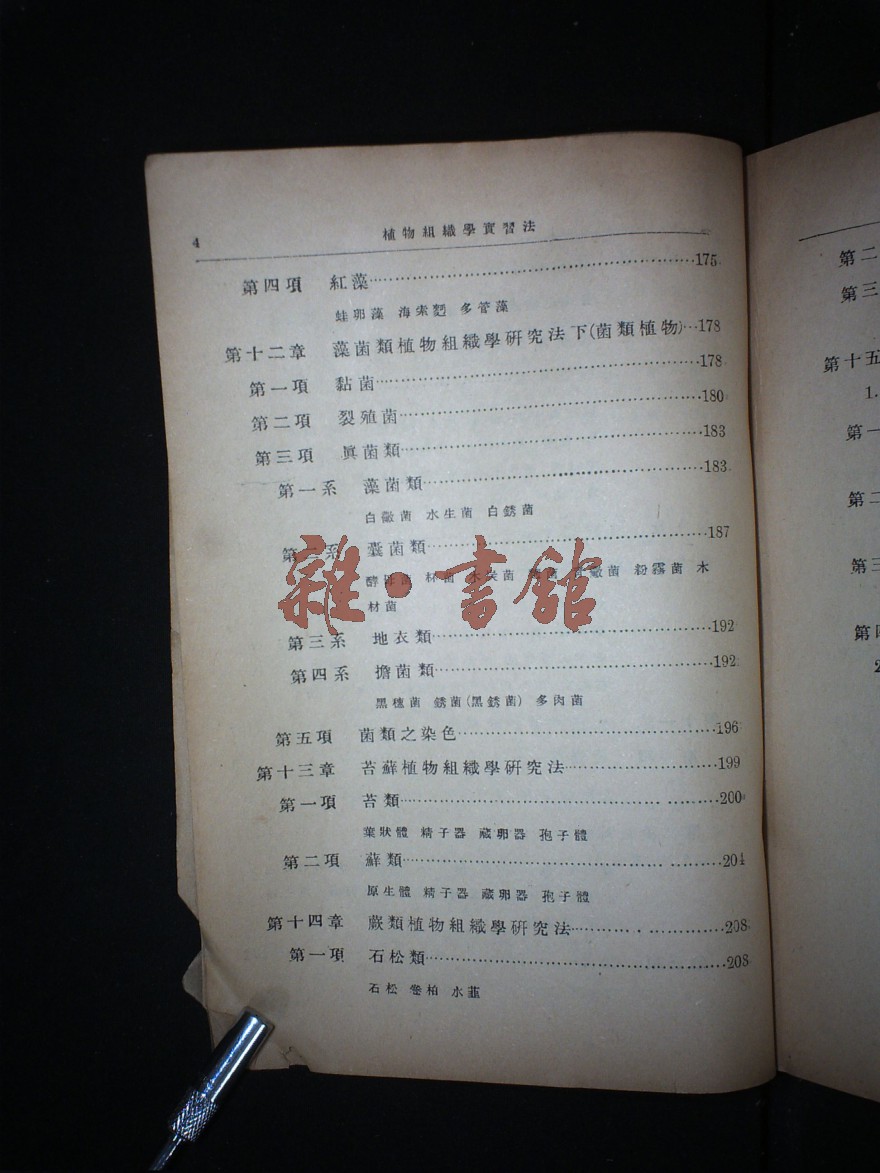 4 植物組織學實習法
第四項 紅藻……175
蛙卵藻 海索麪 多管藻
第十二章 藻菌類植物組織學硏究法下(菌類植物)…178
第一項 黏菌……178
第二項 裂殖菌……180
第三項 眞菌類……183
第一系 藻菌類……183
白黴菌 水生菌 白銹菌
第二系 囊菌類……187
酵母菌 杯菌 黴菌 粉霧菌 木
材菌
第三系 地衣類……192
第四系 擔菌類……192
黑穗菌 銹菌(黑銹菌) 多肉菌
第五項 菌類之染色……196
第十三章 苔蘚植物組織學硏究法……199
第一項 苔類……200
葉狀體 精子器 藏卵器 孢子體
第二項 蘚類……204
原生體 精子器 藏卵器 孢子體
第十四章 蕨類植物組織學硏究法……208
第一項 石松類……208
石松 卷柏 水韮
雜·書館
第二
第三
第十五
1.
第一
第二
第三
第四
2